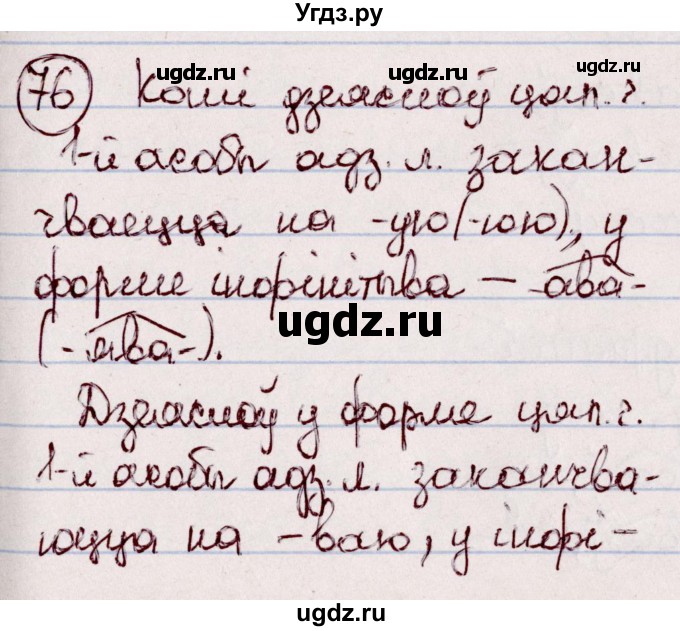 Угдз.ру
ugdz.ru ugdz.ru ugdz.ru
76 Калі дзеяслоў цяп. ч.
1-й асобы адз. л. закан-
чваецца на -ую(-юю), у
форме інфінітыва — -ава-
(-ява-).
ugdz.ru
Дзеяслоў у форме цяп. ч.
1-й асобы адз. л. заканчва-
юцца на -ваю, у інфі-
ugdz.ru ugdz.ru ugdz.ru
ugdz.ru